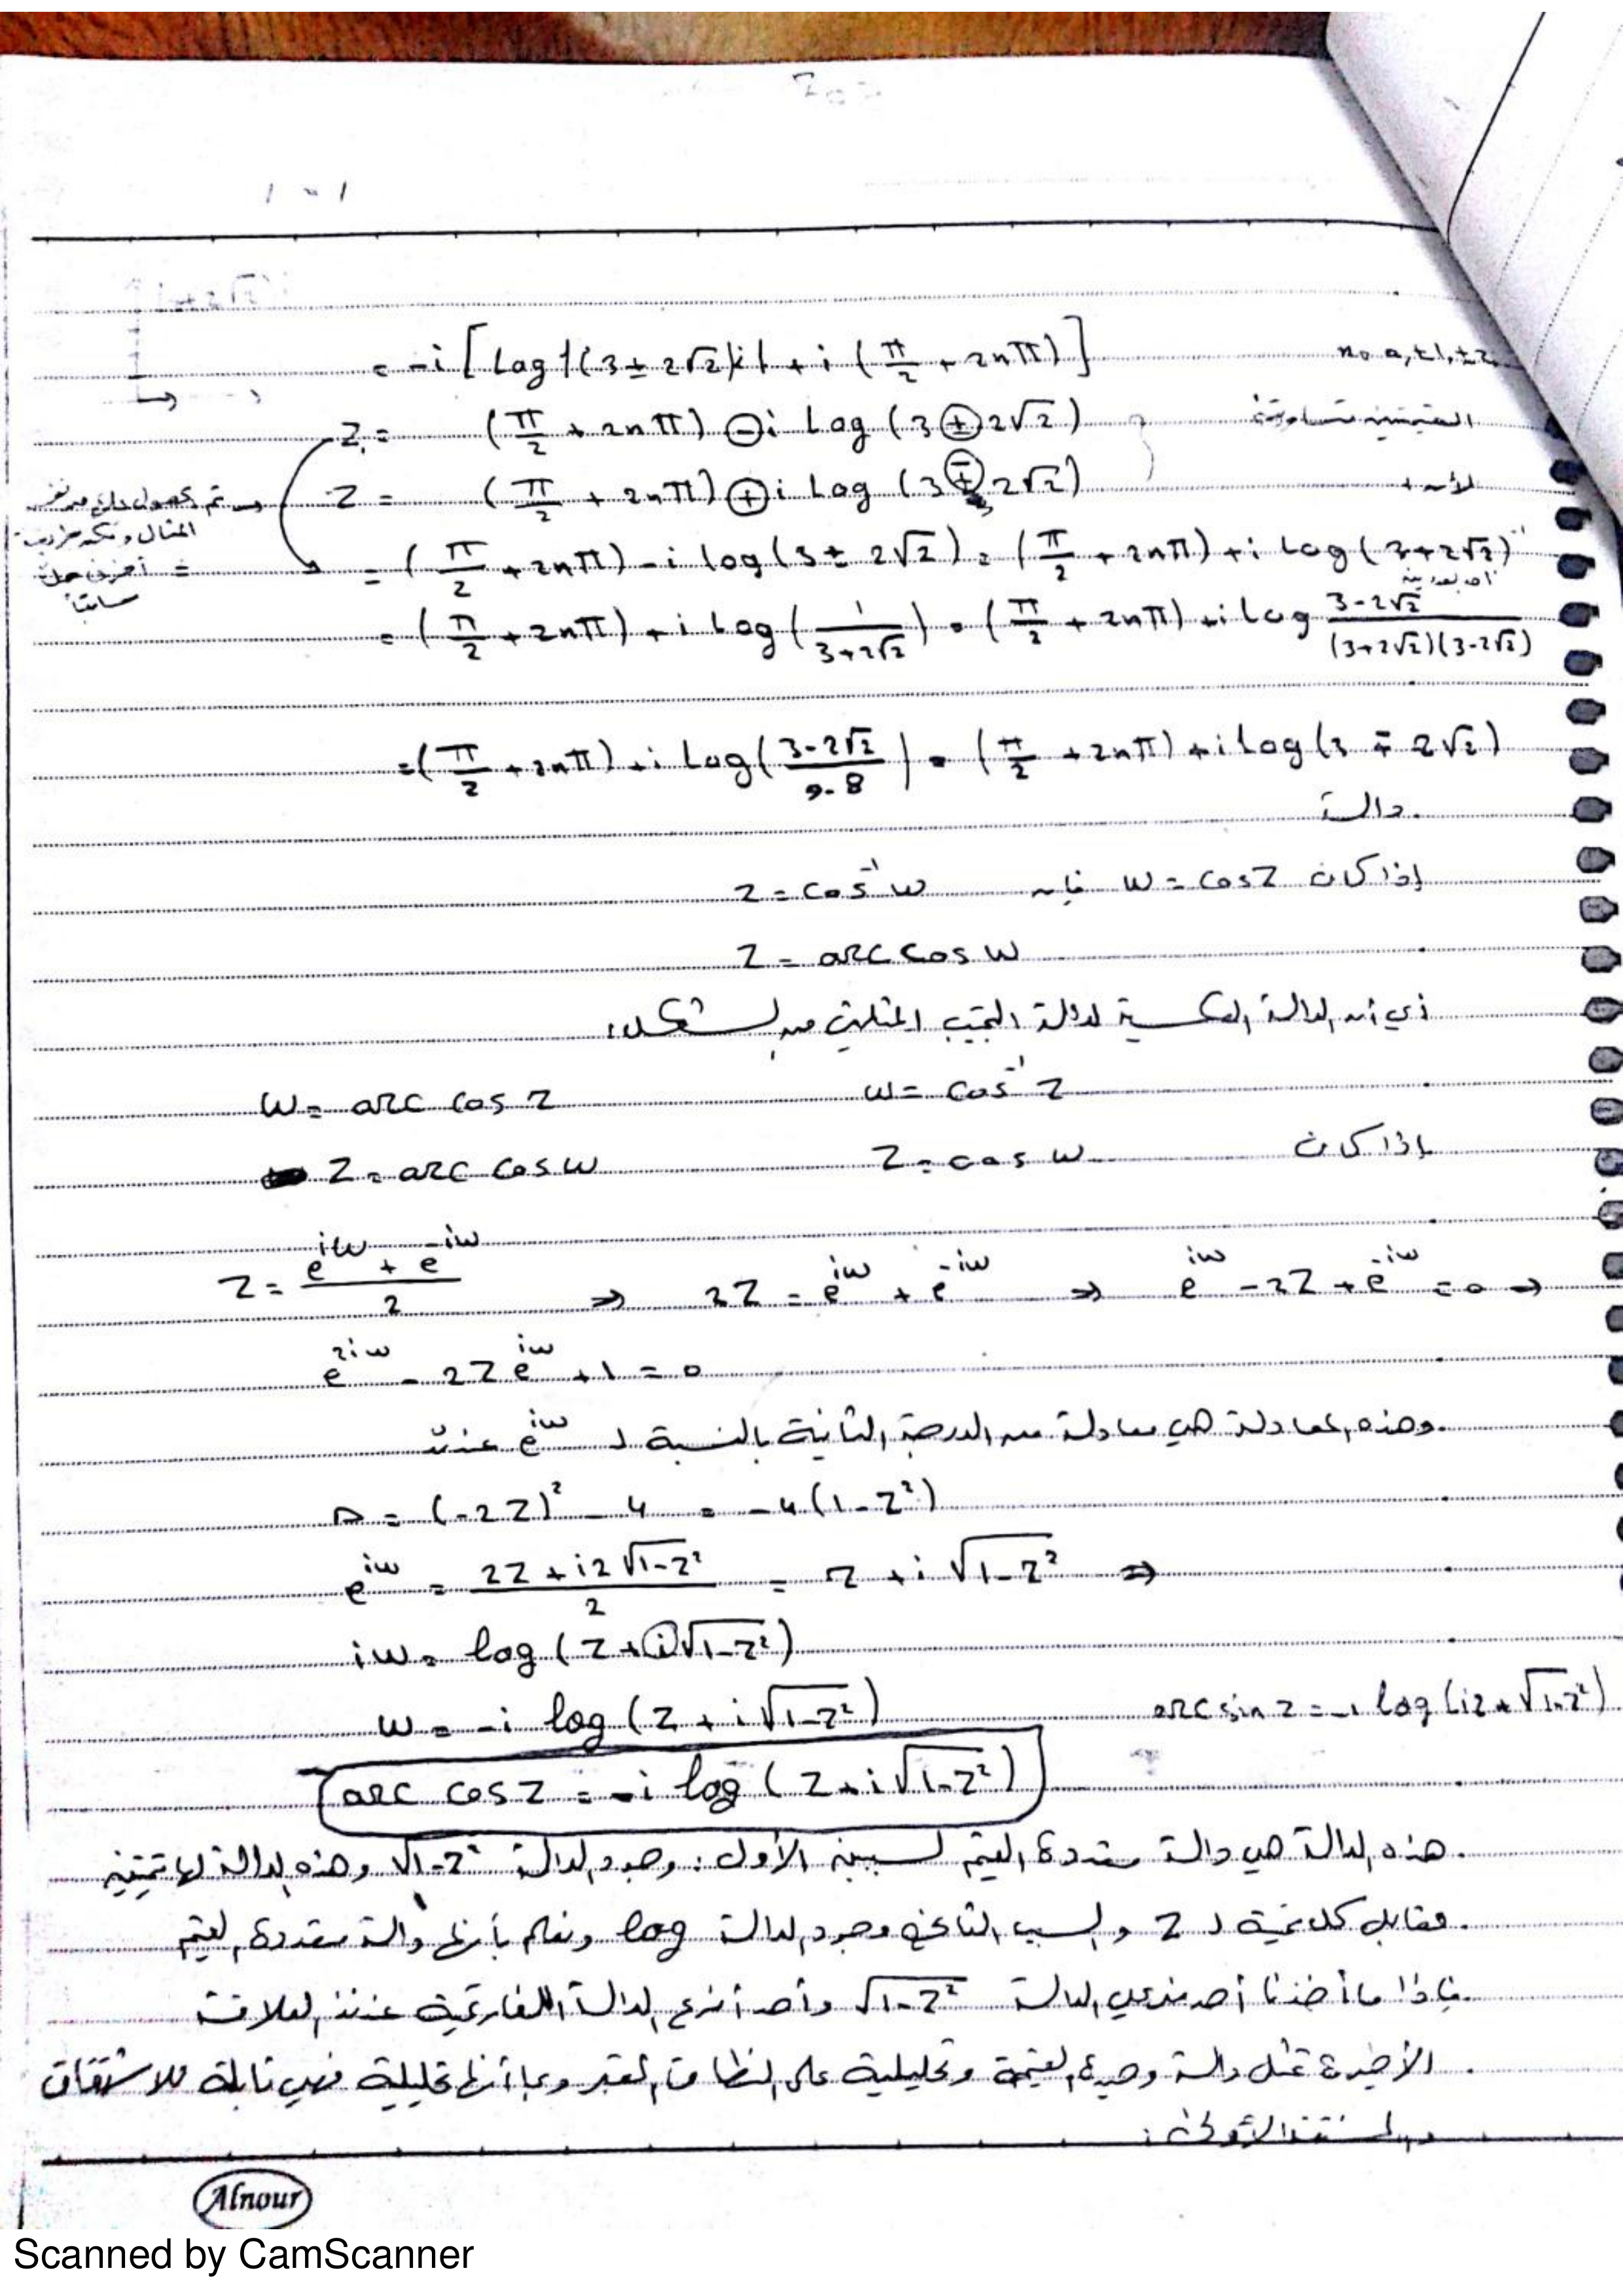 = -i [ Log |(3 ± 2√2)i| + i (π/2 + 2nπ) ] n = 0, ±1, ±2
Z = (π/2 + 2nπ) ⊖ i Log (3 ⊕ 2√2)
Z = (π/2 + 2nπ) ⊕ i Log (3 ∓ 2√2)
= (π/2 + 2nπ) - i log (3 ± 2√2) = (π/2 + 2nπ) + i Log (3 + 2√2)⁻¹
= (π/2 + 2nπ) + i Log (1/(3+2√2)) = (π/2 + 2nπ) + i Log (3-2√2)/((3+2√2)(3-2√2))
= (π/2 + 2nπ) + i Log ((3-2√2)/(9-8)) = (π/2 + 2nπ) + i Log (3 ∓ 2√2)
دالة
إذا كان w = cos Z فإن Z = cos⁻¹ w
Z = arc cos w
أي أن الدالة العكسية لدالة الجيب المثلثي من الشكل:
w = cos⁻¹ Z w = arc cos Z
إذا كان Z = cos w Z = arc cos w
Z = (e^{iw} + e^{-iw})/2 ⇒ 2Z = e^{iw} + e^{-iw} ⇒ e^{iw} - 2Z + e^{-iw} = 0 ⇒
e^{2iw} - 2Z e^{iw} + 1 = 0
وهذه المعادلة هي معادلة من الدرجة الثانية بالنسبة لـ e^{iw} عندئذ
Δ = (-2Z)² - 4 = -4(1-Z²)
e^{iw} = (2Z + i2√(1-Z²))/2 = Z + i√(1-Z²) ⇒
iw = log (Z + i√(1-Z²))
w = -i log (Z + i√(1-Z²)) arc sin z = -i log (iz + √(1-z²))
arc cos Z = -i log (Z + i√(1-Z²))
هذه الدالة هي دالة متعددة القيم لسببين الأول: وجود الدالة √(1-Z²) وهذه الدالة لها قيمتين
مقابل كل قيمة لـ Z والسبب الثاني وجود الدالة log ونعلم بأنها دالة متعددة القيم
فإذا ما أخذنا أحد فرعي الدالة √(1-Z²) وأحد أفرع الدالة اللغارتمية عندئذ العلاقة
الأخيرة تمثل دالة وحيدة القيمة وتحليلية على النطاق المعتبر وبما أنها تحليلية فهي قابلة للاشتقاق
والمشتقة الأولى:
Alnour
Scanned by CamScanner